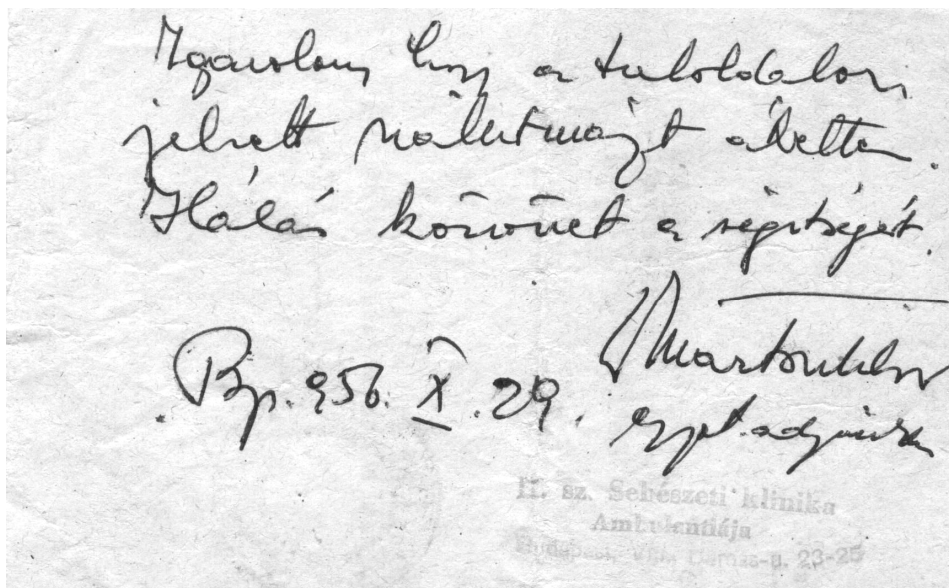 Igazolom hogy a tuloldalon
jelzett szállítmányt átvettem.
Hálás köszönet a segítségért.
Bp. 956. X. 29.
egyet. adjunktus
II. sz. Sebészeti klinika
Ambulantiája
Budapest, VIII. 23-25